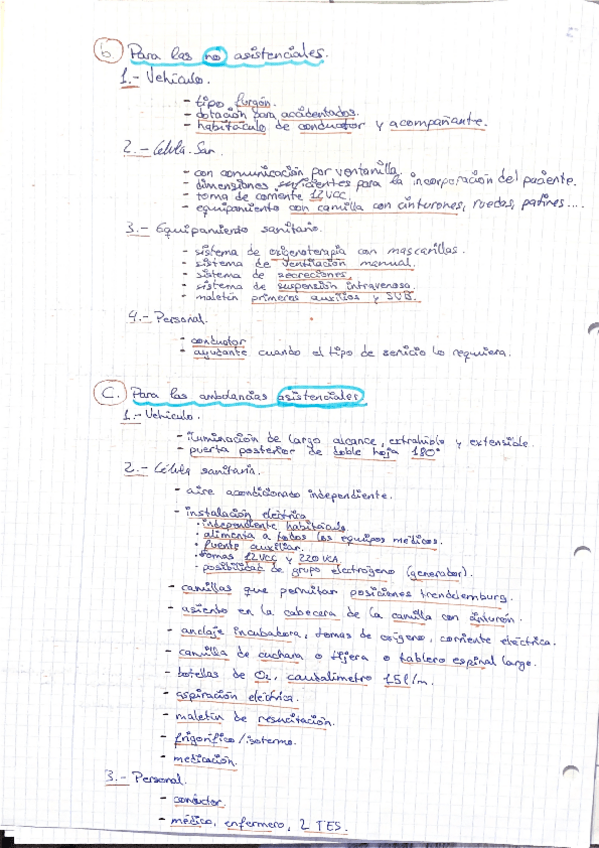 b. Para las no asistenciales.
1.- Vehículo.
- tipo furgón.
- dotación para accidentados.
- habitáculo de conductor y acompañante.
2.- Célula. San.
- con comunicación por ventanilla.
- dimensiones suficientes para la incorporación del paciente.
- toma de corriente 12 VCC.
- equipamiento con camilla con cinturones, ruedas, patines....
3.- Equipamiento sanitario.
- sistema de oxigenoterapia con mascarillas.
- sistema de ventilación manual.
- sistema de secreciones.
- sistema de suspensión intravenosa.
- maletín primeros auxilios y SVB.
4.- Personal.
- conductor
- ayudante cuando el tipo de servicio lo requiera.
C. Para las ambulancias asistenciales
1.- Vehículo.
- iluminación de largo alcance, extraíble y extensible.
- puerta posterior de doble hoja 180°
2.- Célula sanitaria.
- aire acondicionado independiente.
- instalación eléctrica
· independiente habitáculo.
· alimenta a todos los equipos médicos.
· fuente auxiliar.
· tomas 12 VCC y 220 VCA
- posibilidad de grupo electrógeno (generador).
- camillas que permitan posiciones trendelemburg.
- asiento en la cabecera de la camilla con cinturón.
- anclaje incubadora, tomas de oxígeno, corriente eléctrica.
- camilla de cuchara o tijera o tablero espinal largo.
- botellas de O2, caudalímetro 15 l/m.
- aspiración eléctrica.
- maletín de resucitación.
- frigorífico/isotermo.
- medicación.
3.- Personal.
- conductor.
- médico, enfermero, 2 TES.